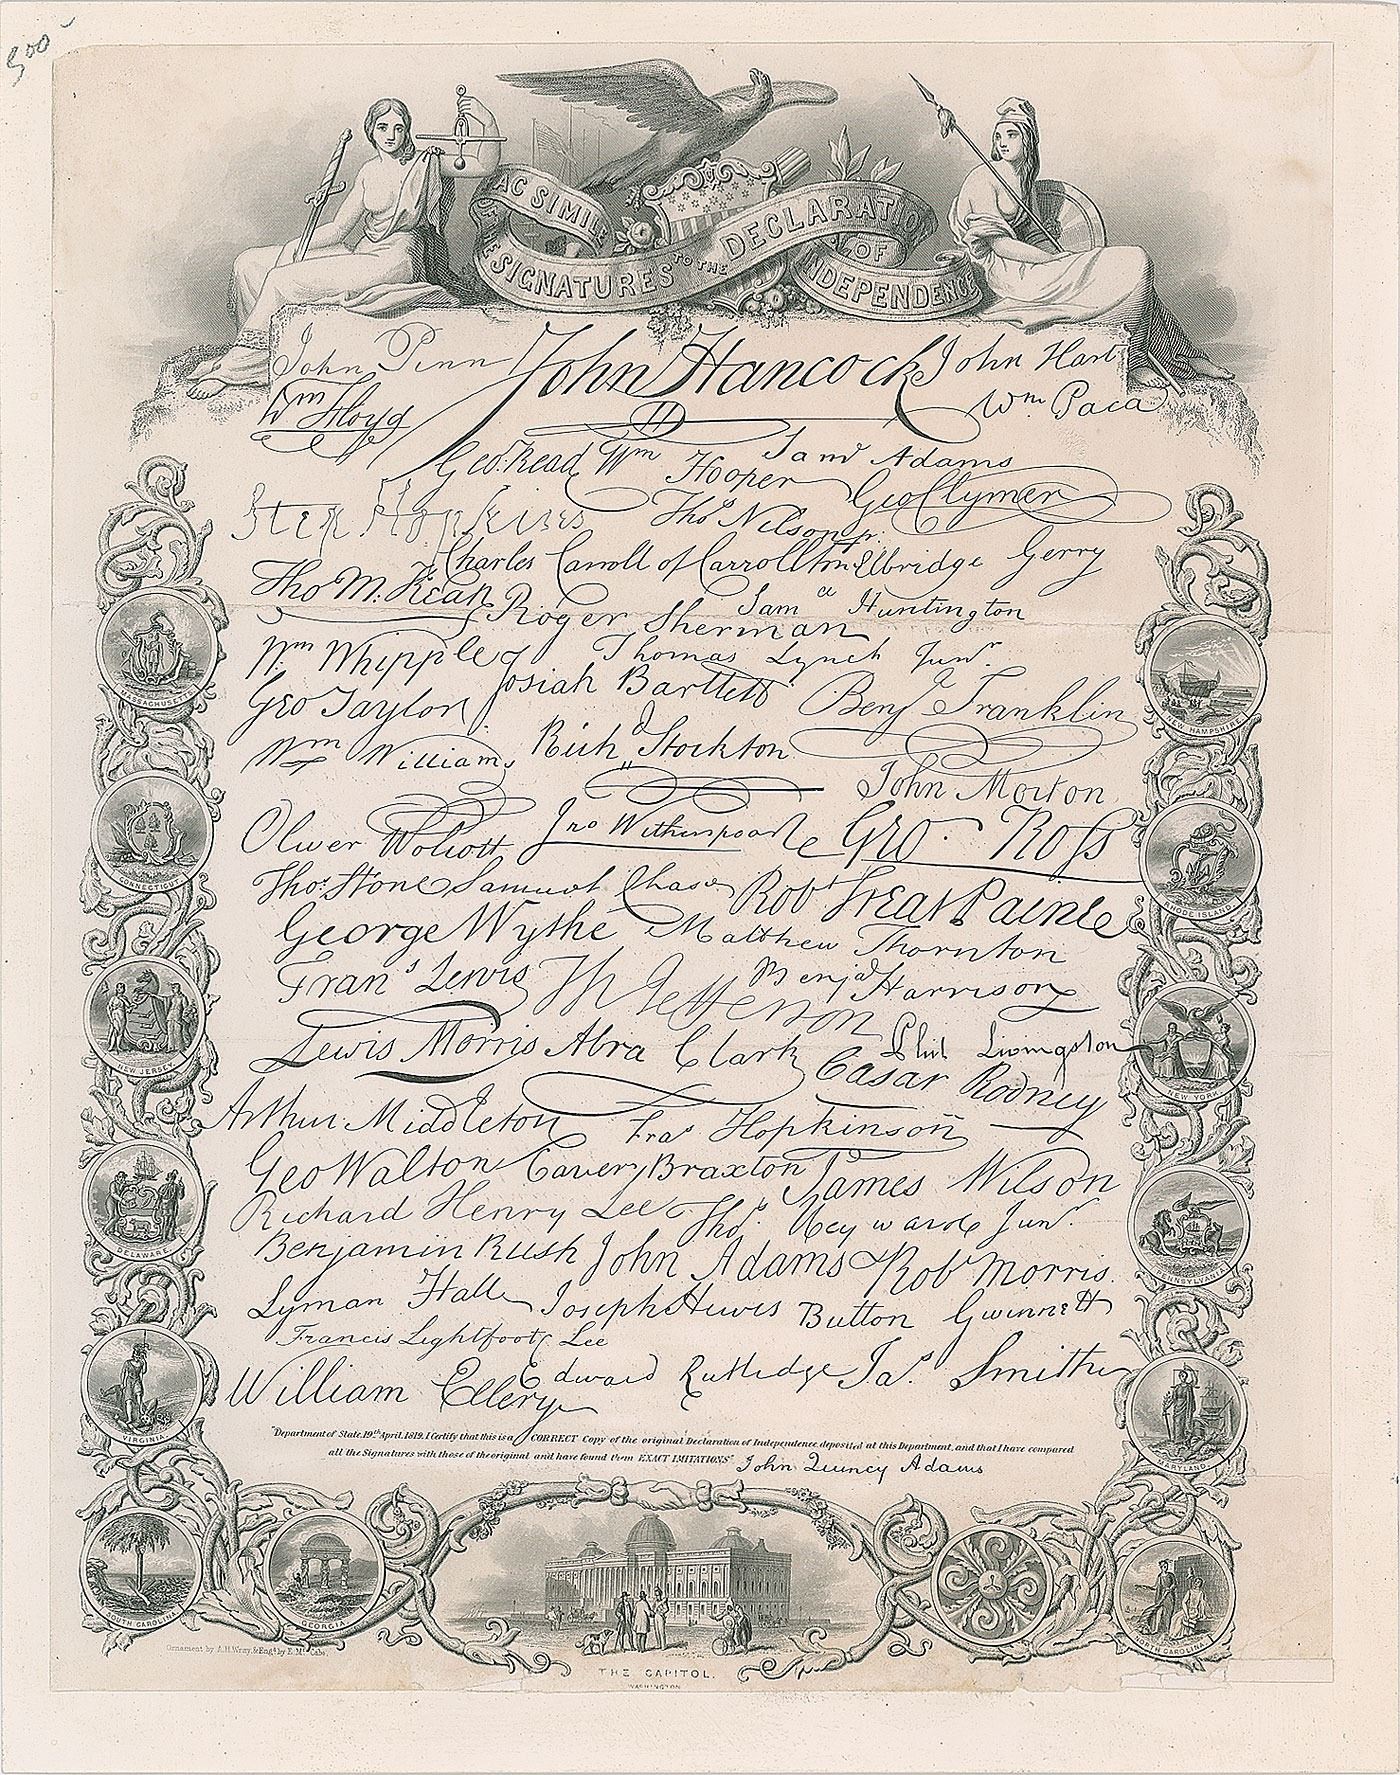 500
FAC SIMILE
OF THE SIGNATURES TO THE DECLARATION
OF
INDEPENDENCE
John Penn John Hancock John Hart
Wm Floyd Wm Paca
Geo. Read Wm Hooper Saml Adams
Geo Clymer
Step Hopkins Thos Nelson jr.
Charles Carroll of Carrollton Elbridge Gerry
Tho M. Kean Roger Sherman Saml Huntington
Wm Whipple Thomas Lynch Junr.
Geo Taylor Josiah Bartlett Benj Franklin
Wm Williams Richd Stockton
John Morton
Oliver Wolcott Jno Witherspoon Geo. Ross
Thos. Stone Samuel Chase Robt Treat Paine
George Wythe Matthew Thornton
Frans Lewis Th Jefferson Benja Harrison
Lewis Morris Abra Clark Phil Livingston
Casar Rodney
Arthur Middleton Fras Hopkinson
Geo Walton Carter Braxton James Wilson
Richard Henry Lee Thos. Heyward Junr.
Benjamin Rush John Adams Robt Morris
Lyman Hall Joseph Hewes Button Gwinnett
Francis Lightfoot Lee
William Ellery Edward Rutledge Jas. Smith
"Department of State, 19th April, 1819. I Certify that this is a CORRECT Copy of the original Declaration of Independence deposited at this Department, and that I have compared
all the Signatures with those of the original and have found them EXACT IMITATIONS" John Quincy Adams
MASSACHUSETTS
NEW HAMPSHIRE
CONNECTICUT
RHODE ISLAND
NEW JERSEY
NEW YORK
DELAWARE
PENNSYLVANIA
VIRGINIA
MARYLAND
SOUTH CAROLINA
GEORGIA
NORTH CAROLINA
Ornament by A.H. Wray, & Engd. by E. Mc. Cabe.
THE CAPITOL.
WASHINGTON